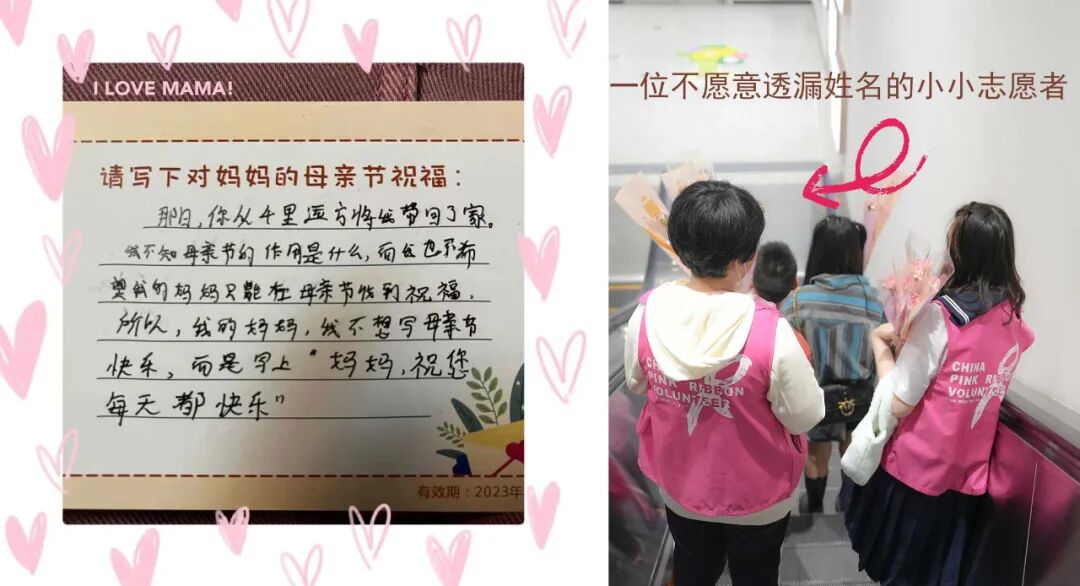 I LOVE MAMA!
请写下对妈妈的母亲节祝福：
那日，你从千里远方将我带回了家。
我不知母亲节的作用是什么，而我也不希
望我的妈妈只能在母亲节收到祝福，
所以，我的妈妈，我不想写母亲节
快乐，而是写上“妈妈，祝您
每天都快乐”
有效期：2023年
一位不愿意透漏姓名的小小志愿者
CHINA
PINK RIBBON
VOLUNTEER
CHINA
PINK RIBBON
VOLUNTEER